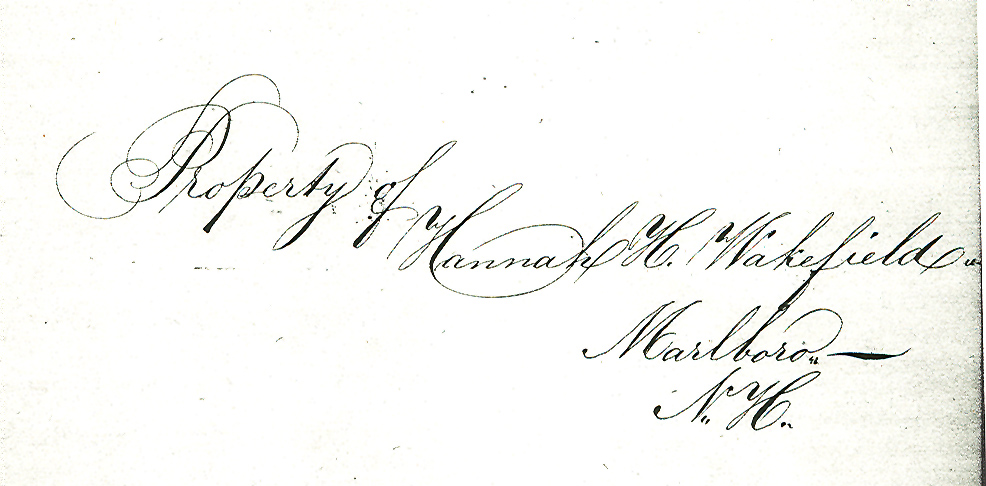 Property of Hannah H. Wakefield
Marlboro
N. H.